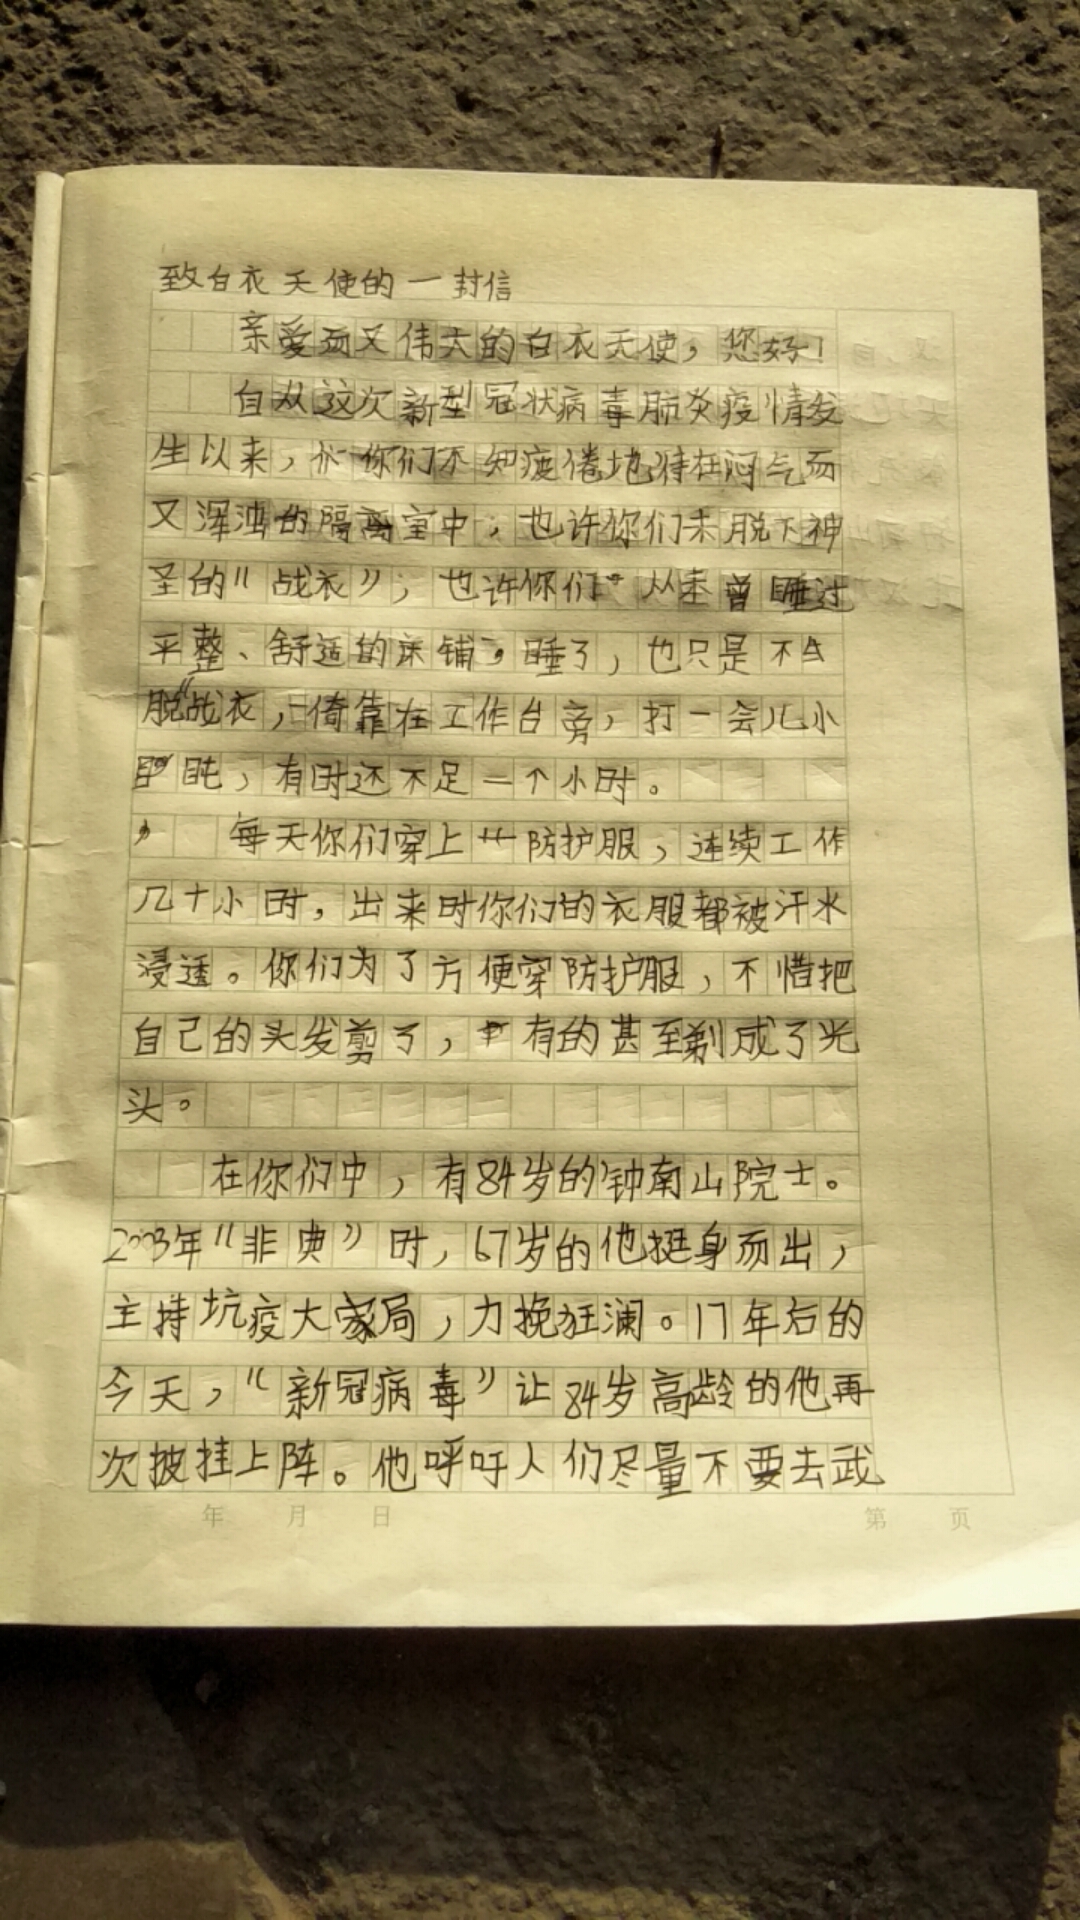 致白衣天使的一封信
亲爱而又伟大的白衣天使，您好！
自从这次新型冠状病毒肺炎疫情发
生以来，你们不知疲倦地待在闷气而
又浑浊的隔离室中，也许你们未脱下神
圣的“战衣”；也许你们从未曾睡过
平整、舒适的床铺。睡了，也只是不
脱“战衣，倚靠在工作台旁，打一会儿小
盹，有时还不足一个小时。
每天你们穿上防护服，连续工作
几十小时，出来时你们的衣服都被汗水
浸透。你们为了方便穿防护服，不惜把
自己的头发剪了，有的甚至剃成了光
头。
在你们中，有84岁的钟南山院士。
2003年“非典”时，67岁的他挺身而出，
主持坑疫大家局，力挽狂澜。17年后的
今天，“新冠病毒”让84岁高龄的他再
次披挂上阵。他呼吁人们尽量不要去武
年 月 日
第 页